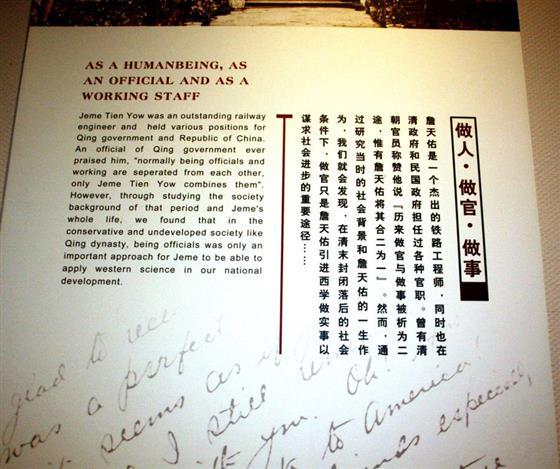 AS A HUMANBEING, AS
AN OFFICIAL AND AS A
WORKING STAFF
Jeme Tien Yow was an outstanding railway
engineer and held various positions for
Qing government and Republic of China.
An official of Qing government ever
praised him, "normally being officials and
working are seperated from each other,
only Jeme Tien Yow combines them".
However, through studying the society
background of that period and Jeme's
whole life, we found that in the
conservative and undeveloped society like
Qing dynasty, being officials was only an
important approach for Jeme to be able to
apply western science in our national
development.
做人·做官·做事
詹天佑是一个杰出的铁路工程师，同时也在
清政府和民国政府担任过各种官职。曾有清
朝官员称赞他说『历来做官与做事被析为二
途，惟有詹天佑将其合二为一』。然而，通
过研究当时的社会背景和詹天佑的一生作
为，我们就会发现，在清末封闭落后的社会
条件下，做官只是詹天佑引进西学做实事以
谋求社会进步的重要途径……
glad to
was a perfect
it seems as
I still
you. Oh!
to America!